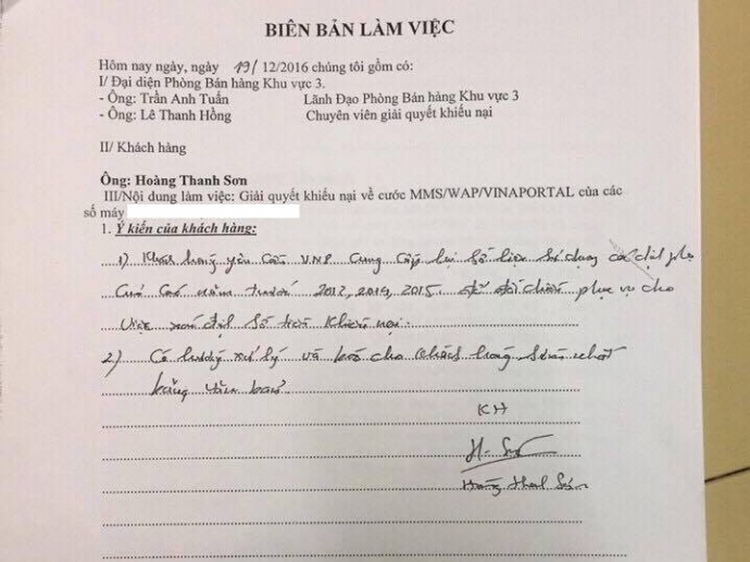 BIÊN BẢN LÀM VIỆC
Hôm nay ngày, ngày 19/12/2016 chúng tôi gồm có:
I/ Đại diện Phòng Bán hàng Khu vực 3.
- Ông: Trần Anh Tuấn Lãnh Đạo Phòng Bán hàng Khu vực 3
- Ông: Lê Thanh Hồng Chuyên viên giải quyết khiếu nại
II/ Khách hàng
Ông: Hoàng Thanh Sơn
III/Nội dung làm việc: Giải quyết khiếu nại về cước MMS/WAP/VINAPORTAL của các
số máy
1. Ý kiến của khách hàng:
1) Khách hàng yêu cầu VNP Cung Cấp lại Số liệu Sử dụng
các năm trước 2013, 2014, 2015 để đối chiếu phục vụ cho
việc xác định số tiền khiếu nại.
2) Có hướng xử lý và cho khách hàng sớm nhất
bằng văn bản
KH
Hoàng Thanh Sơn